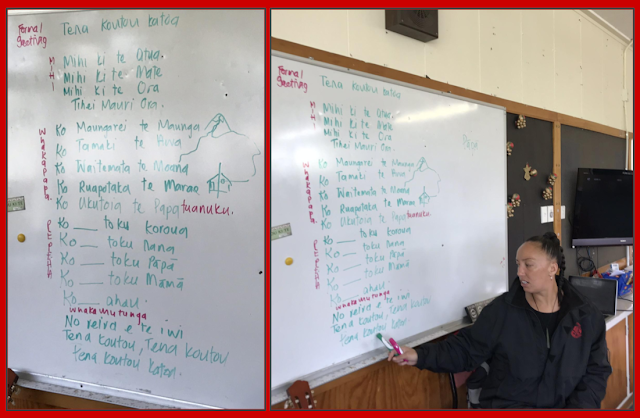 Formal/
Greeting
Tena koutou katoa
MIHI
Mihi ki te Atua.
Mihi ki te Mate
Mihi ki te Ora
Tihei Mauri Ora.
Whakapapa
Ko Maungarei te Maunga
Ko Tamaki te Awa
Ko Waitemata te Moana
Ko Ruapotaka te Marae
Ko Ukutoia te Papatuanuku.
PEPEHA
Ko ___ toku koroua
Ko ___ toku Nana
Ko ___ toku Pāpā
Ko ___ toku Māmā
Ko ___ ahau.
whakamutunga
No reira e te iwi
Tena koutou, Tena koutou
tena koutou katoa.
Formal/
Greeting
Tena koutou katoa
MIHI
Mihi ki te Atua.
Mihi ki te Mate
Mihi ki te Ora
Tihei Mauri Ora.
Whakapapa
Ko Maungarei te Maunga
Ko Tamaki te Awa
Ko Waitemata te Moana
Ko Ruapotaka te Marae
Ko Ukutoia te Papatuanuku.
PEPEHA
Ko ___ toku koroua
Ko ___ toku Nana
Ko ___ toku Pāpā
Ko ___ toku Māmā
Ko ___ ahau.
whakamutunga
No reira e te iwi
Tena koutou, Tena koutou
tena koutou katoa.